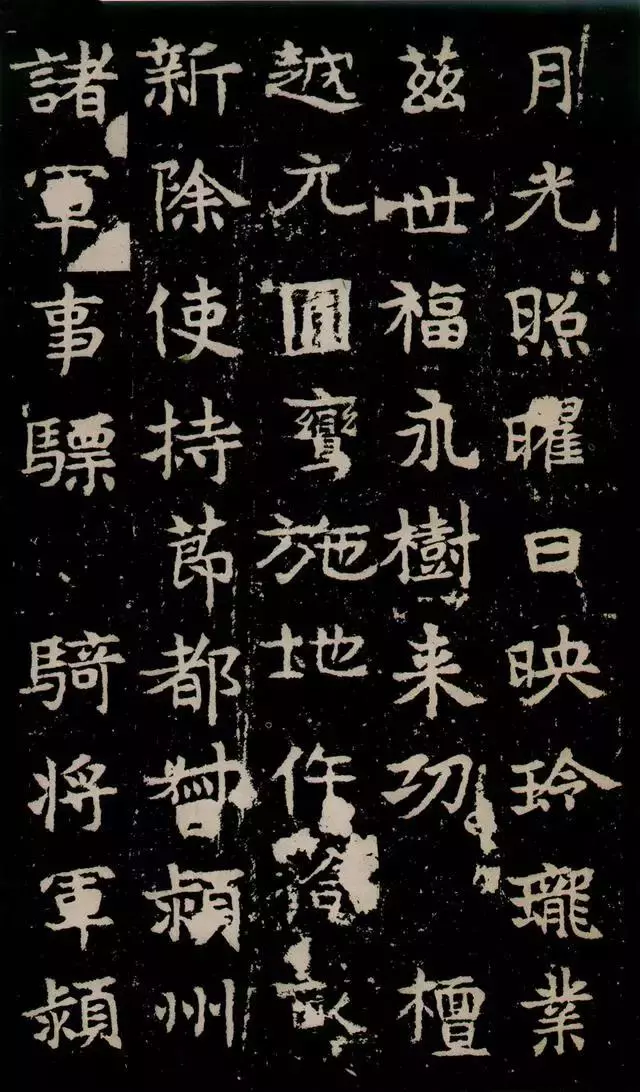 月光照曜日映玲瓏業
茲世福永樹来功檀
越元施地作
新除使持莭都督潁州
諸軍事驃騎将軍潁